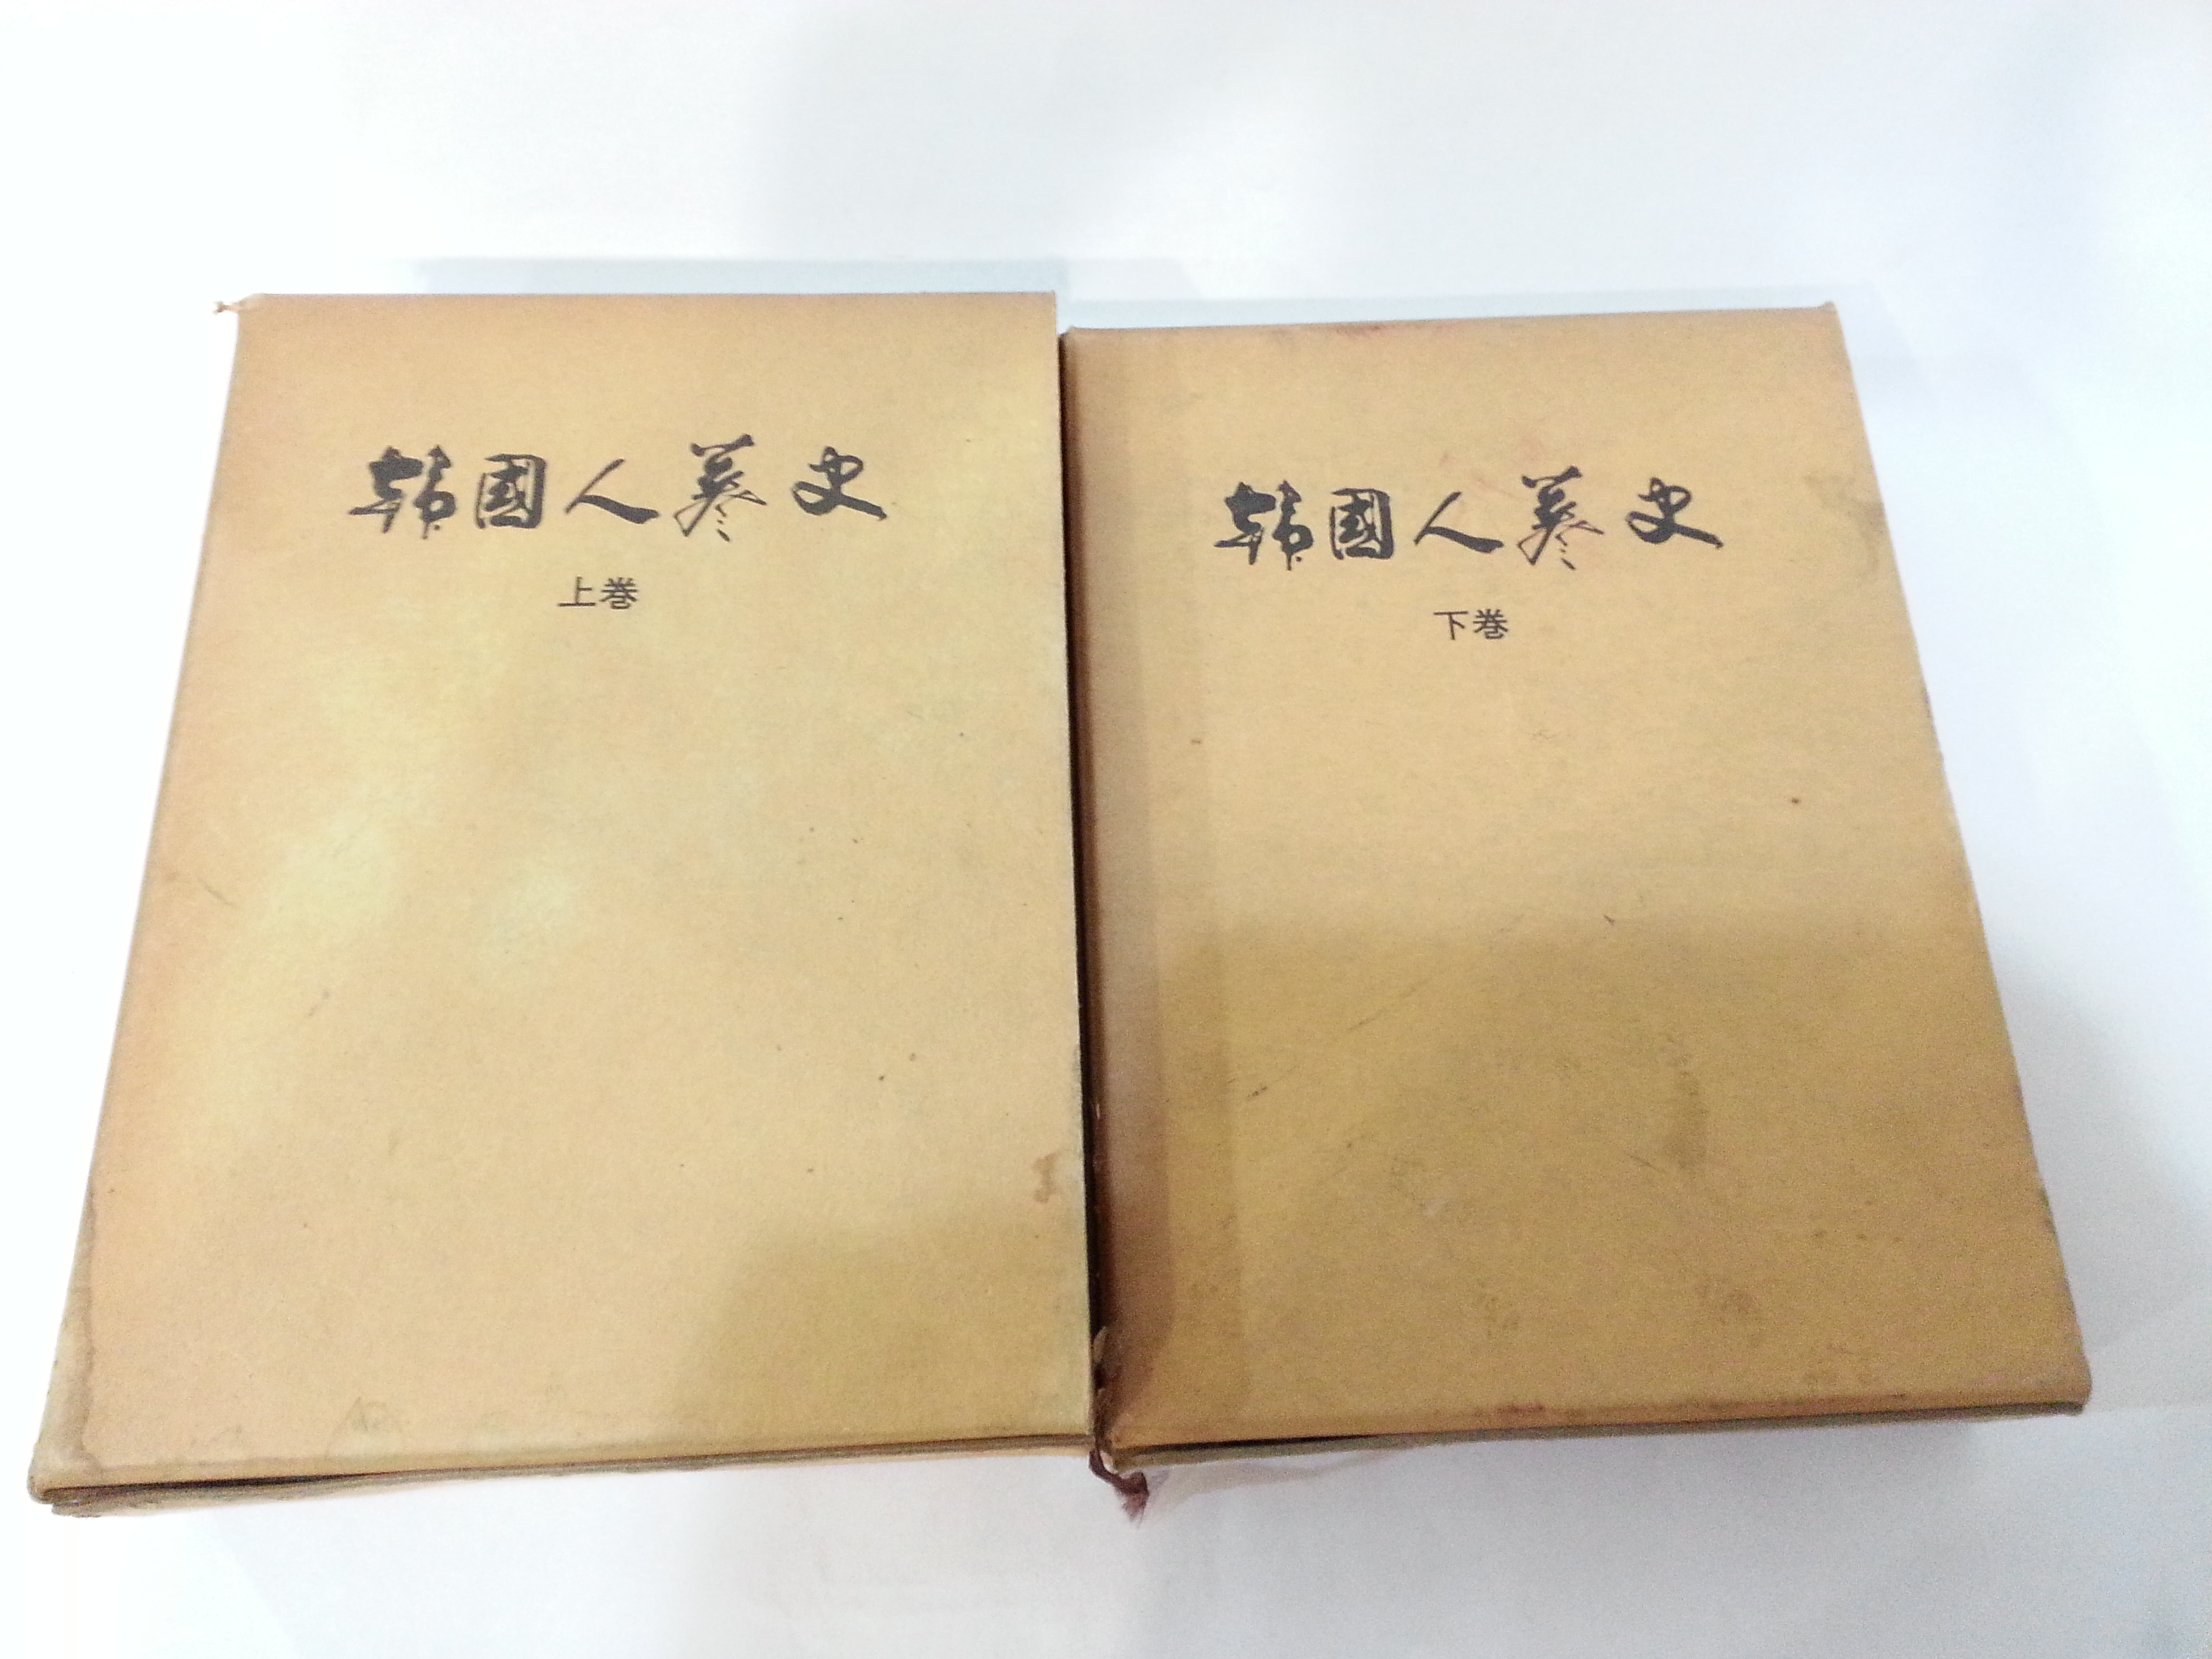 韓國人蔘史
上巻
韓國人蔘史
下巻